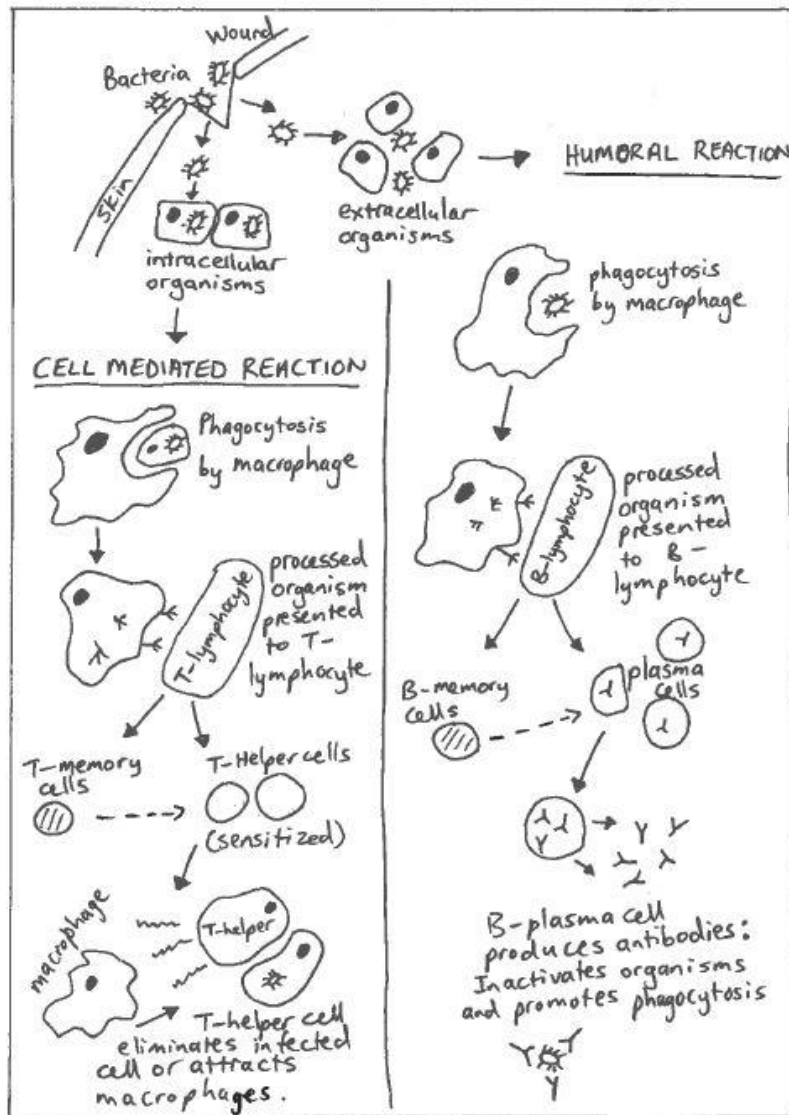 Wound
Bacteria
Skin
intracellular
organisms
extracellular
organisms
HUMORAL REACTION
CELL MEDIATED REACTION
Phagocytosis
by macrophage
processed
organism
presented
to T-
lymphocyte
T-lymphocyte
T-memory
cells
T-Helper cells
(sensitized)
macrophage
T-helper
T-helper cell
eliminates infected
cell or attracts
macrophages.
phagocytosis
by macrophage
B-lymphocyte
processed
organism
presented
to B-
lymphocyte
B-memory
cells
plasma
cells
B-plasma cell
produces antibodies:
Inactivates organisms
and promotes phagocytosis